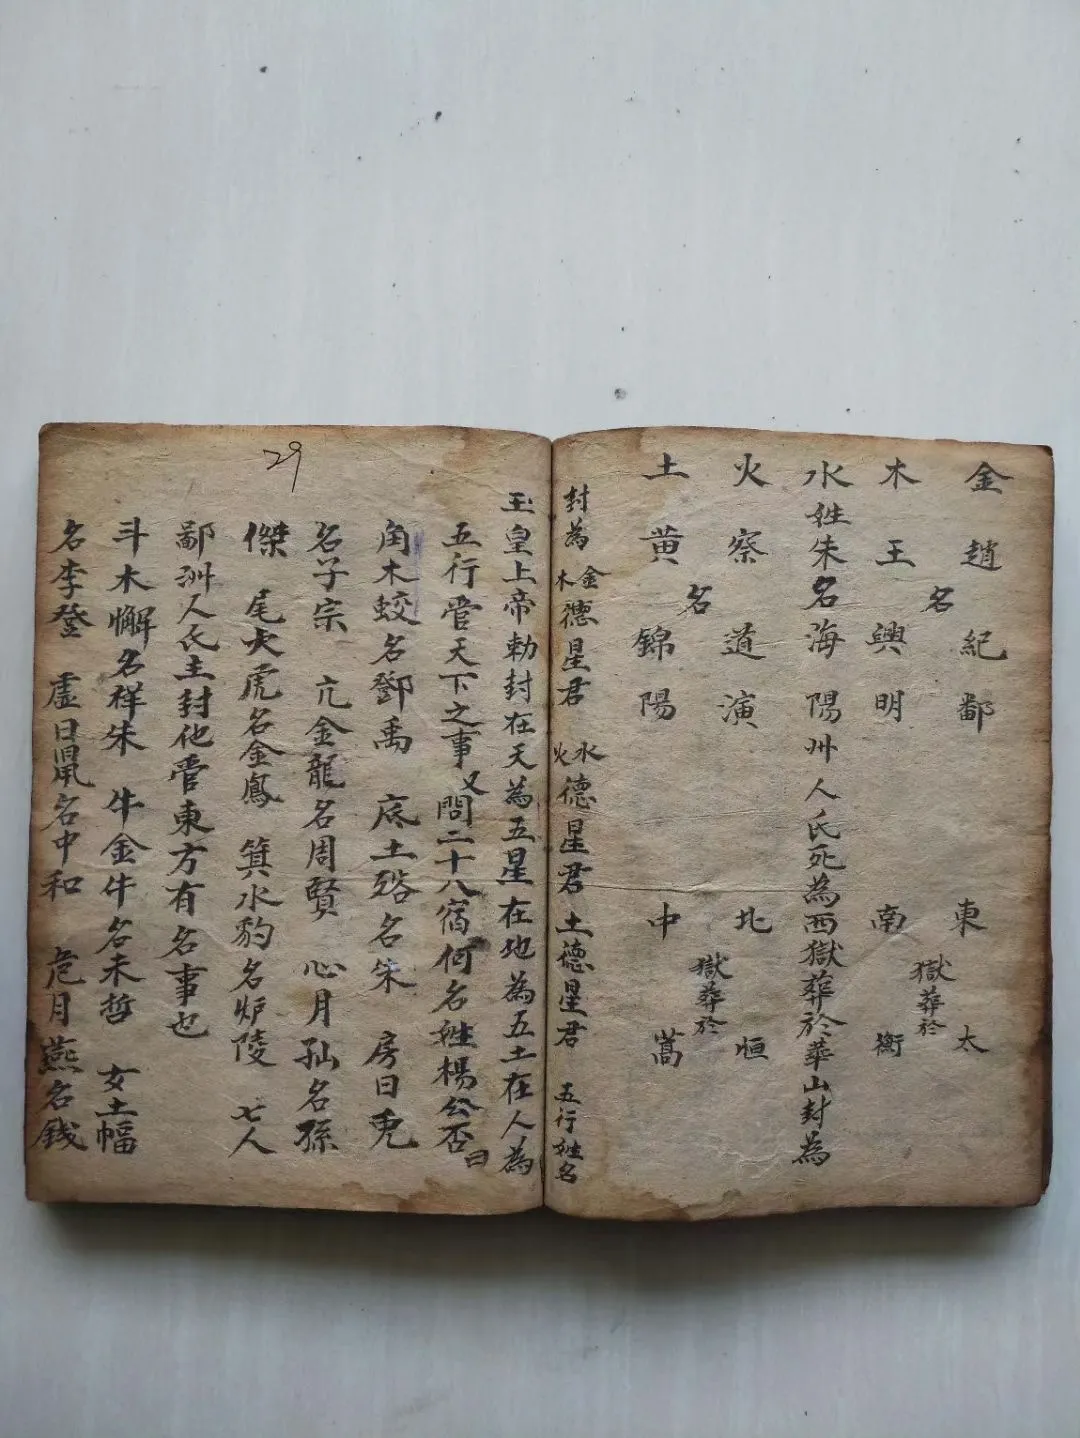 金趙紀鄱 東 太
名 獄葬於
木王興明 南 衡
水姓朱名海陽州人氏死為西獄葬於華山封為
火察道演 北 恒
名 獄葬於
土黄錦陽 中 嵩
封為金木德星君 水火德星君 土德星君 五行姓名
玉皇上帝勅封在天為五星在地為五土在人為
五行管天下之事又問二十八宿何名姓楊公否曰
角木蛟名鄧禹 底土 名朱 房日兎
名子宗 亢金龍名周賢 心月狐名孫
傑 尾火虎名金鳳 箕水豹名炉陵 七人
鄱洲人氏主封他管東方有名事也
斗木懈名样朱 牛金牛名未哲 女土幅
名李登 虚日鼠名中和 危月燕名錢
29